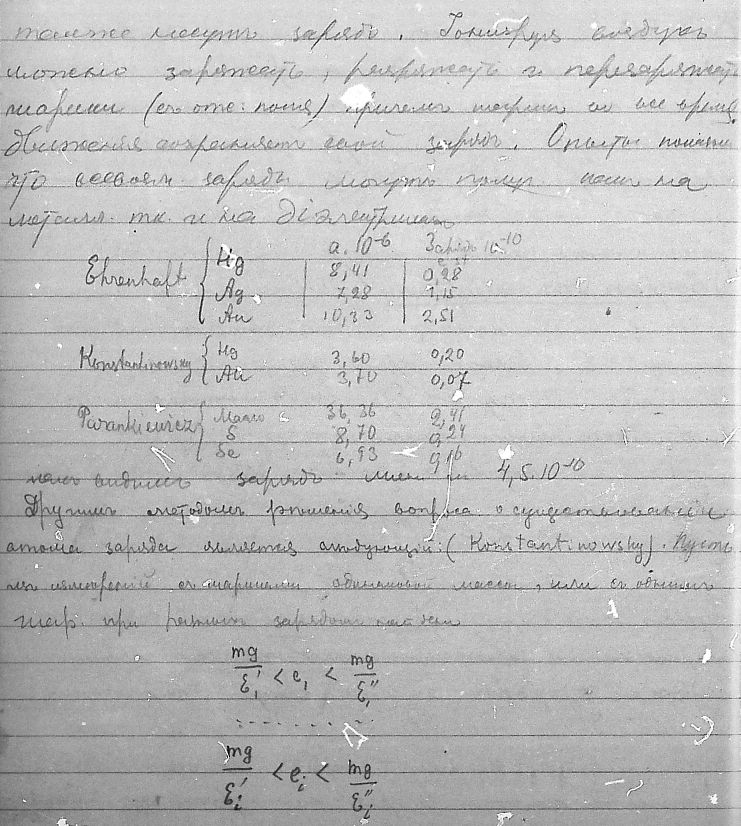 также несутъ зарядъ. Іонизируя воздухъ
можно заряжать, разряжать и перезаряжать
шарики (съ отс: поля) причемъ шарикъ во все время
движенія сохраняетъ свой зарядъ. Опыты показали
что зарядъ могутъ какъ на
металл. тк. и на діэлектрикахъ
a. 10⁻⁶ Зарядъ 10⁻¹⁰
Ehrenhaft { Hg 8,41 0,28
Ag 7,28 1,15
Au 10,33 2,51
Konstantinowsky { Hg 3,60 0,20
Au 3,70 0,07
Parankiewicz { Масло 36,36 2,41
S 8,70 0,24
Se 6,93 0,16
какъ видимъ зарядъ 4,5.10⁻¹⁰
Другимъ методомъ рѣшенія вопроса о существованіи
атома заряда является слѣдующій: (Konstantinowsky). Пусть
изъ измѣреній съ шариками одинаковой массы, или съ однимъ
шар. при разныхъ зарядахъ
mg/ε₁' < e₁ < mg/ε₁''
. . . . . . . .
mg/εᵢ' < eᵢ < mg/εᵢ''